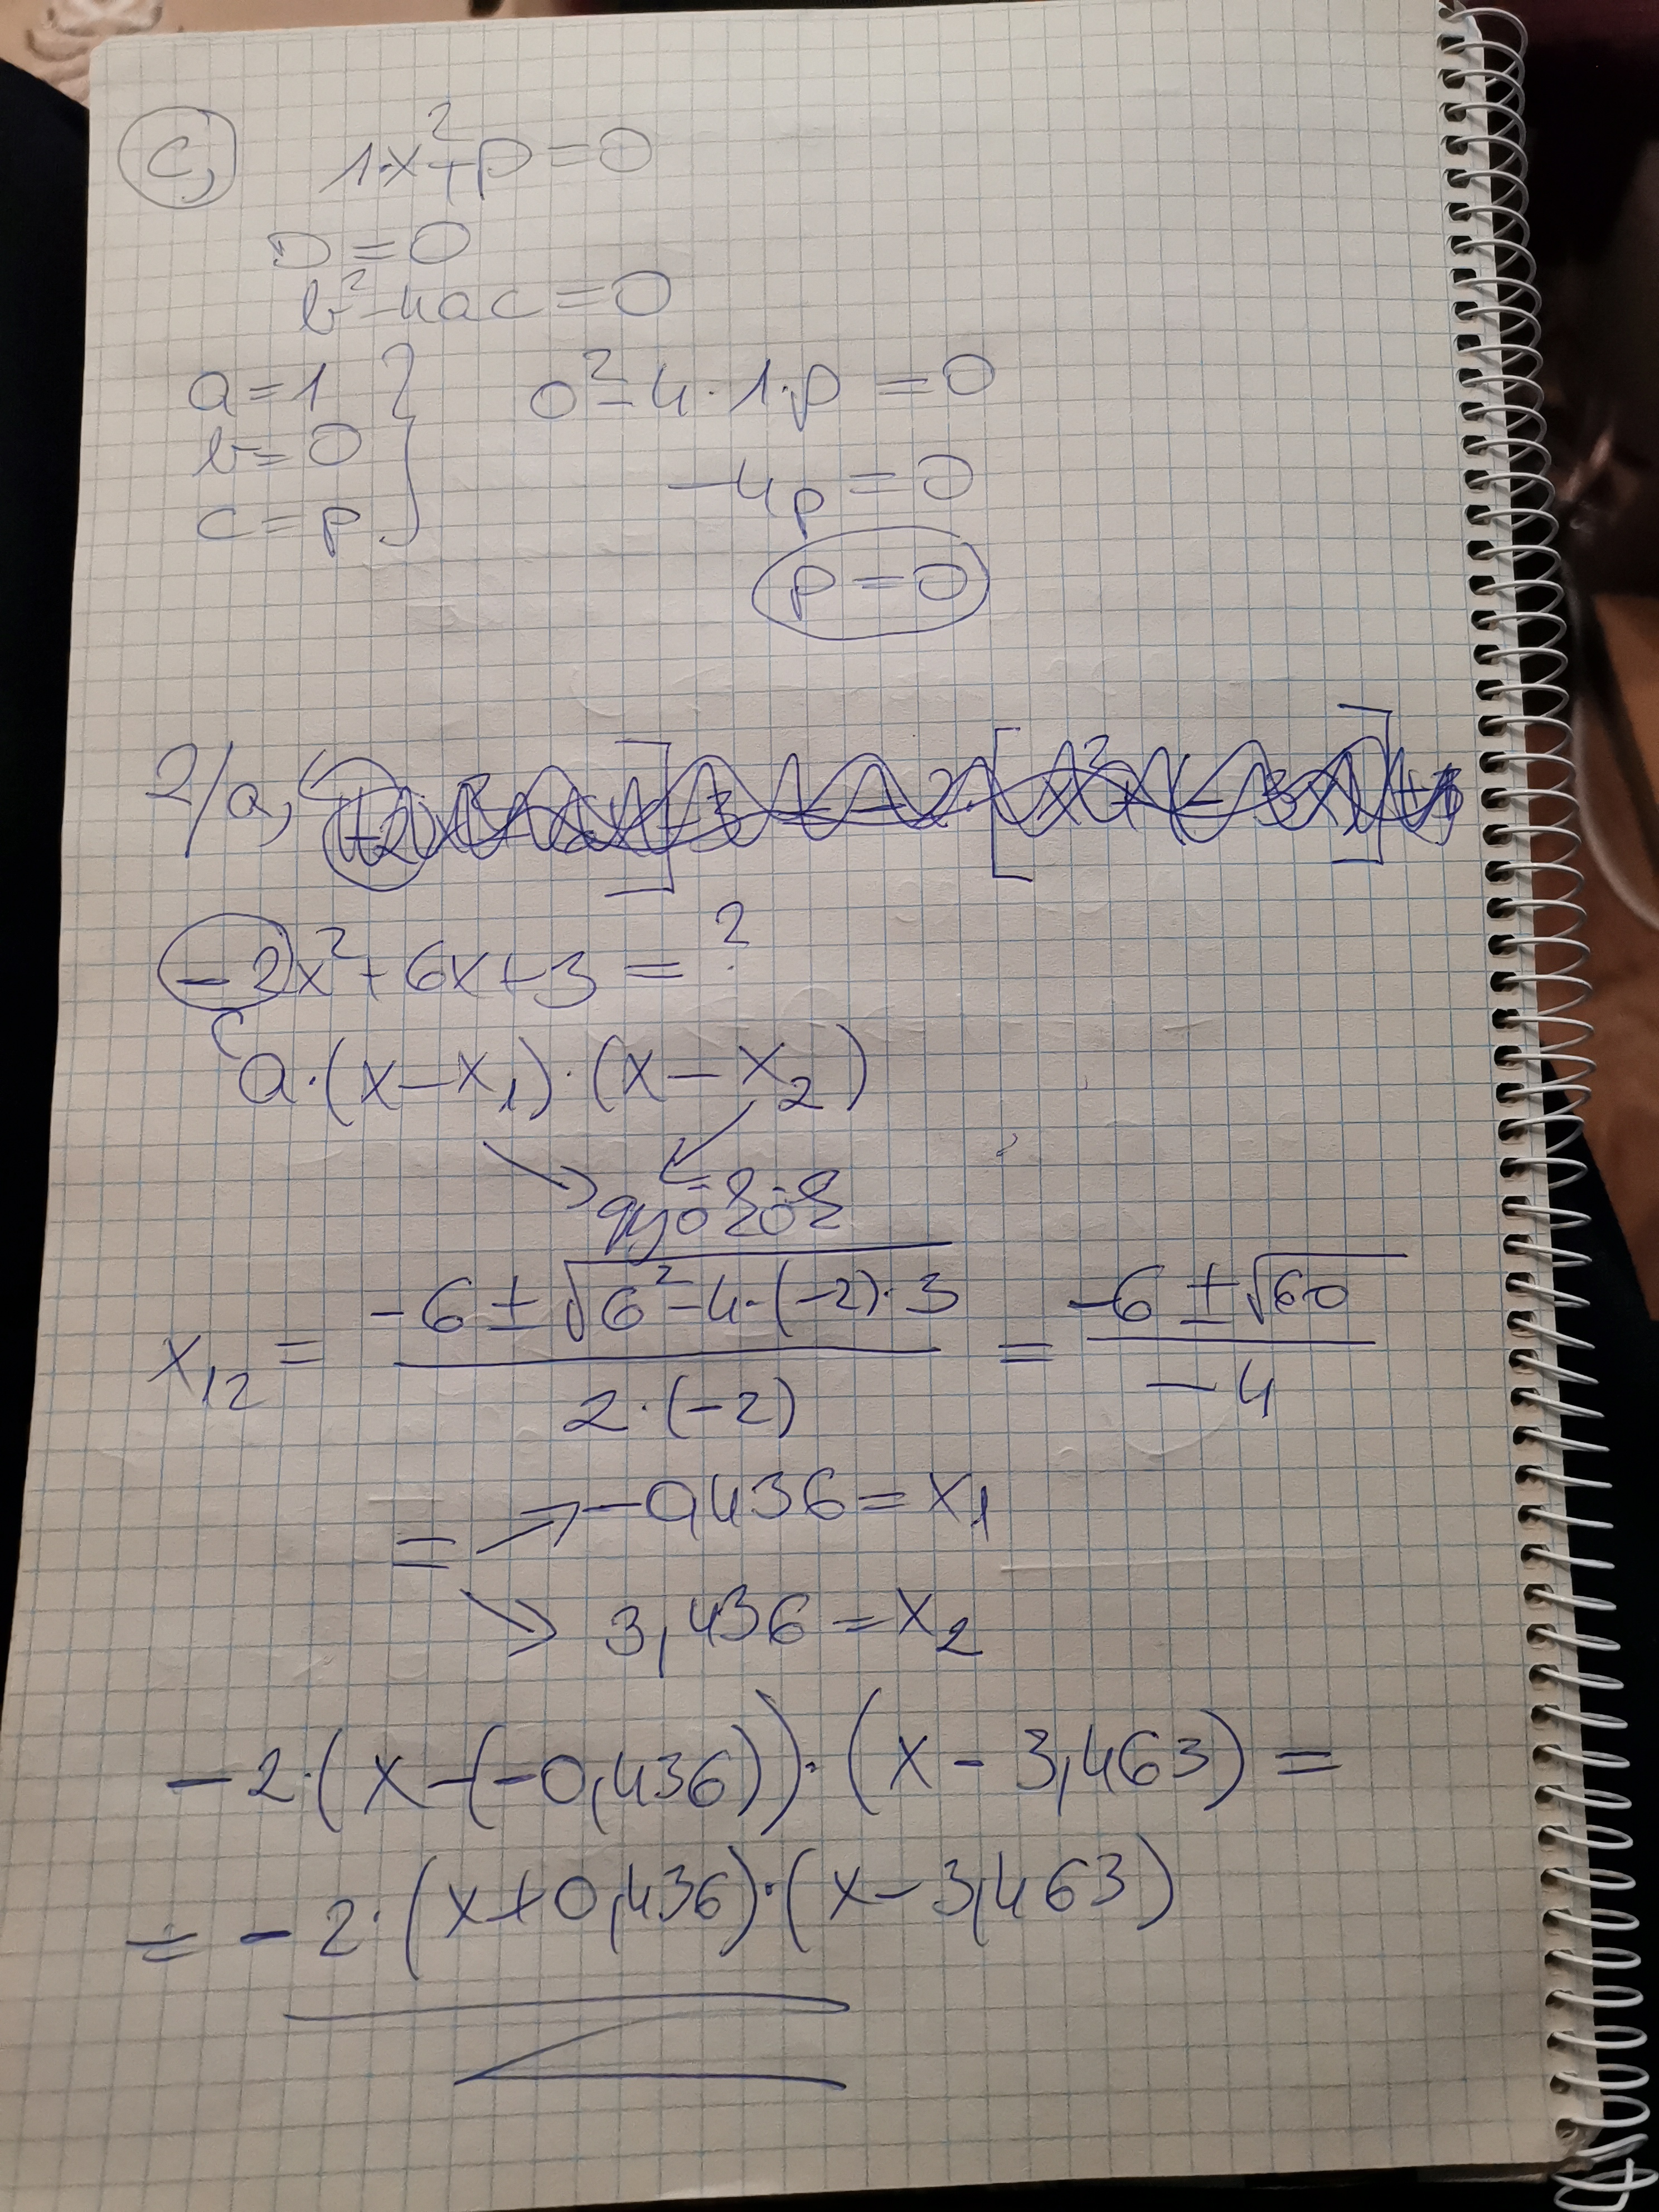 c, 1·x²+p=0
D=0
b²-4ac=0
a=1
b=0
c=p
0²-4·1·p=0
-4p=0
p=0
2/a,
-2x²+6x+3=?
a·(x-x₁)·(x-x₂)
gyökök
x₁₂ = (-6±√(6²-4·(-2)·3))/(2·(-2)) = (-6±√60)/(-4)
= → -0,436=x₁
→ 3,436=x₂
-2·(x-(-0,436))·(x-3,463)=
=-2·(x+0,436)·(x-3,463)